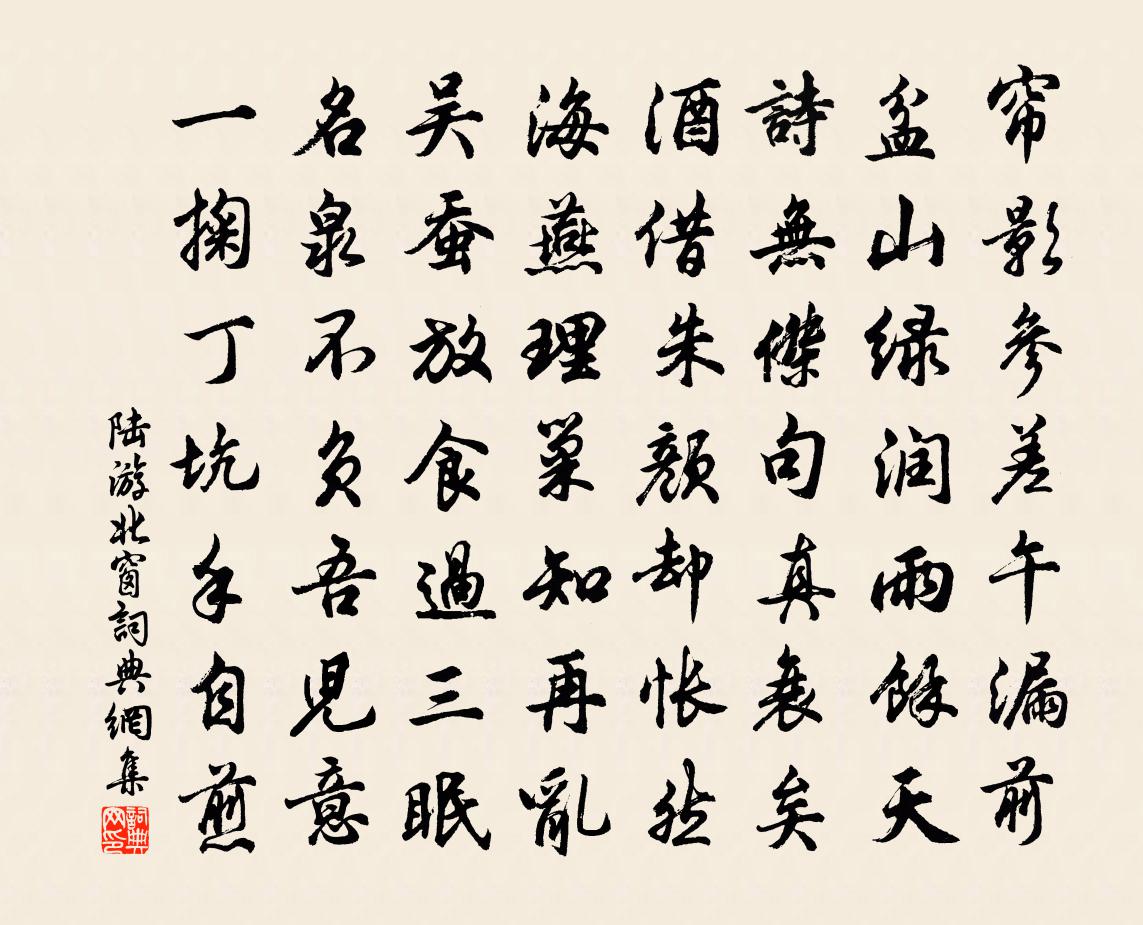 帘影參差午漏前
盆山绿润雨餘天
詩無傑句真衰矣
酒借朱顏却怅然
海燕理巢知再亂
吴蚕放食過三眠
名泉不负吾児意
一掬丁坑手自煎
陆游北窗詞典網集
詞典网印